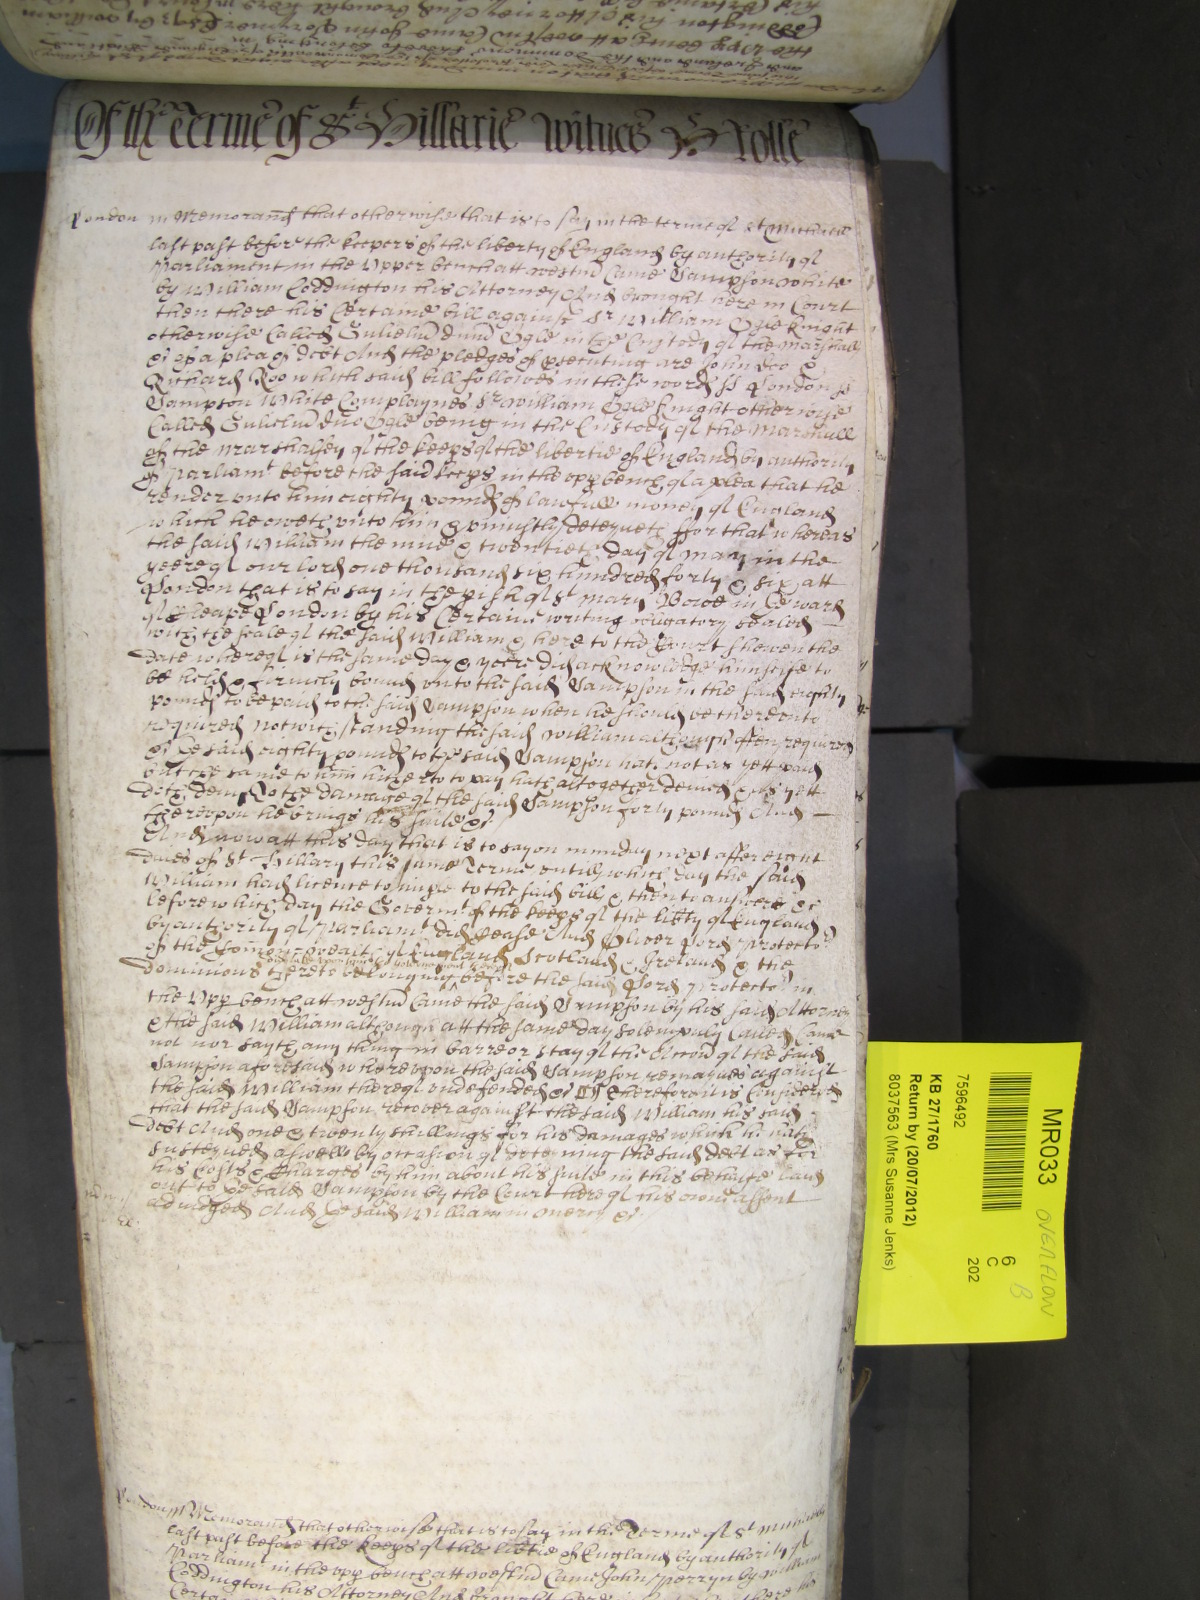 Of the Terme of St Hillarie Witnes H Rolle
London ss Memorand that otherwise that is to say in the terme of St Michaell
last past before the keepers of the liberty of England by authority of
Parliament in the Upper bench att westm Came Sampson White
by William Coddington his Attorney And brought here in Court
then there his Certaine bill against Sr William Ogle Knight
otherwise Called Gulielm dnm Ogle in the Custody of the Marshall
&c of a plea of debt And the pledges of prsecuting are John Doo &
Richard Roo which said bill followes in these words ss London ss
Sampson White Complaynes Sr William Ogle Knight otherwise
Called Gulielm dno Ogle being in the Custody of the Marshall
of the Marshalsey of the keeps of the libertie of England by authority
of Parliamt before the said keeps in the upp bench of a plea that he
render unto him eighty pounds of lawfull money of England
which he oweth unto him & uniustly deteyneth ffor that whereas
the said William the nine & twentieth day of May in the
yeere of our lord one thousand six hundred forty & six att
London that is to say in the pish of St Mary Bowe in ye ward
of Cheape London by his Certaine writing obligatory sealed
with the seale of the said William & here to the Court shewen the
date whereof is the same day & yeere did acknowledge himselfe to
be held & firmely bound unto the said Sampson in the said eighty
pounds to be paid to the said Sampson when he should be thereunto
required notwithstanding the said William although often required
&c ye said eighty pounds to the said Sampson hath not as yett paid
but the same to him hitherto to pay hath altogether denied & as yett
doth deny To the damage of the said Sampson forty pounds And
thereupon he brings his suite &c
And now att this day that is to say on munday next after eight
daies of St Hillary this same Terme untill which day the said
William had licence to imple to the said bill & then to answere &c
before which day the Governmt of the keeps of the libty of England
by authority of Parliamt did cease And Oliver Lord Protector
of the Comonwealth of England Scotland & Ireland & the
dominions thereto belonging before the said Lord Protector in
the Upp bench att westm Came the said Sampson by his said Attorney
& the said William although att the same day solempnly Called Came
not nor sayth any thing in barre or stay of the Accon of the said
Sampson aforesaid whereupon the said Sampson remaynes against
the said William thereof undefended &c Therefore it is Considered
that the said Sampson recover against the said William his said
debt And one & twenty shillings for his damages which he hath
susteyned aswell by occasion of deteyning the said debt as for
his costs & Charges by him about his suite in this behalfe laid
out to ye said Sampson by the Court here of his owne assent
adiudged And ye said William in mercy &c
London ss Memorand that otherwise that is to say in the Terme of St Michaell
last past before the keeps of the libtie of England by authority of
Parliamt in the upp bench att westm Came John Perryn by William
Coddington his Attorney And brought here
MR033 OVERFLOW
6
C B
202
7596492
KB 27/1760
Return by (20/07/2012)
8037563 (Mrs Susanne Jenks)